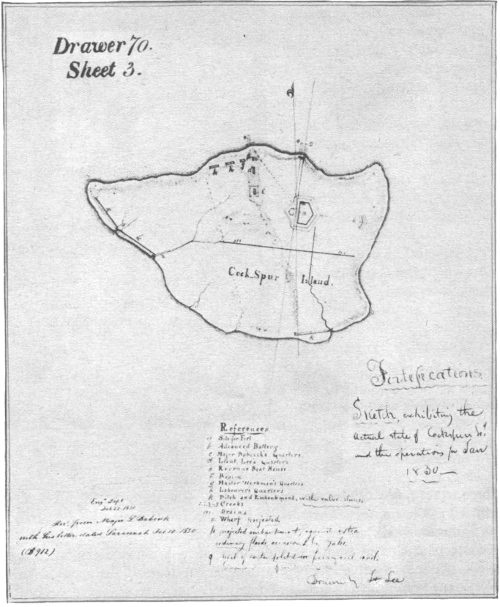 Drawer 70.
Sheet 3.
Cock Spur Island.
Fortifications
Sketch, exhibiting the
actual state of Cockspur Isd
and the operations for Jany
1830
References
a Site for Fort
b Advanced Battery
c Major Babcock's Quarters
d Lieut. Lee's Quarters
e Revenue Boat House
g Master Workmen's Quarters
h Labourers Quarters
k Ditch and Embankment, with
Creeks
m Drains
Wharf projected
p projected embankment, against extra
ordinary floods occasioned by gales
q
Engr Dept
Recd from Major S. Babcock
with his letter dated Savannah 1830
(B 912)
Drawn by Lt Lee